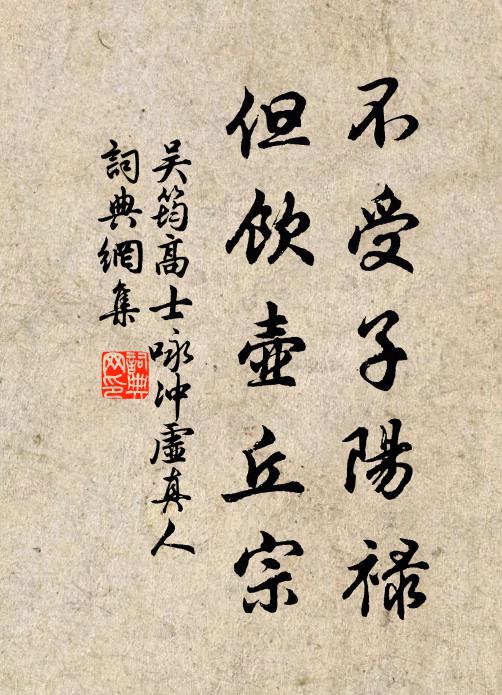 不受子陽祿
但飲壺丘宗
吴筠高士咏冲虛真人
詞典網集
詞典網印